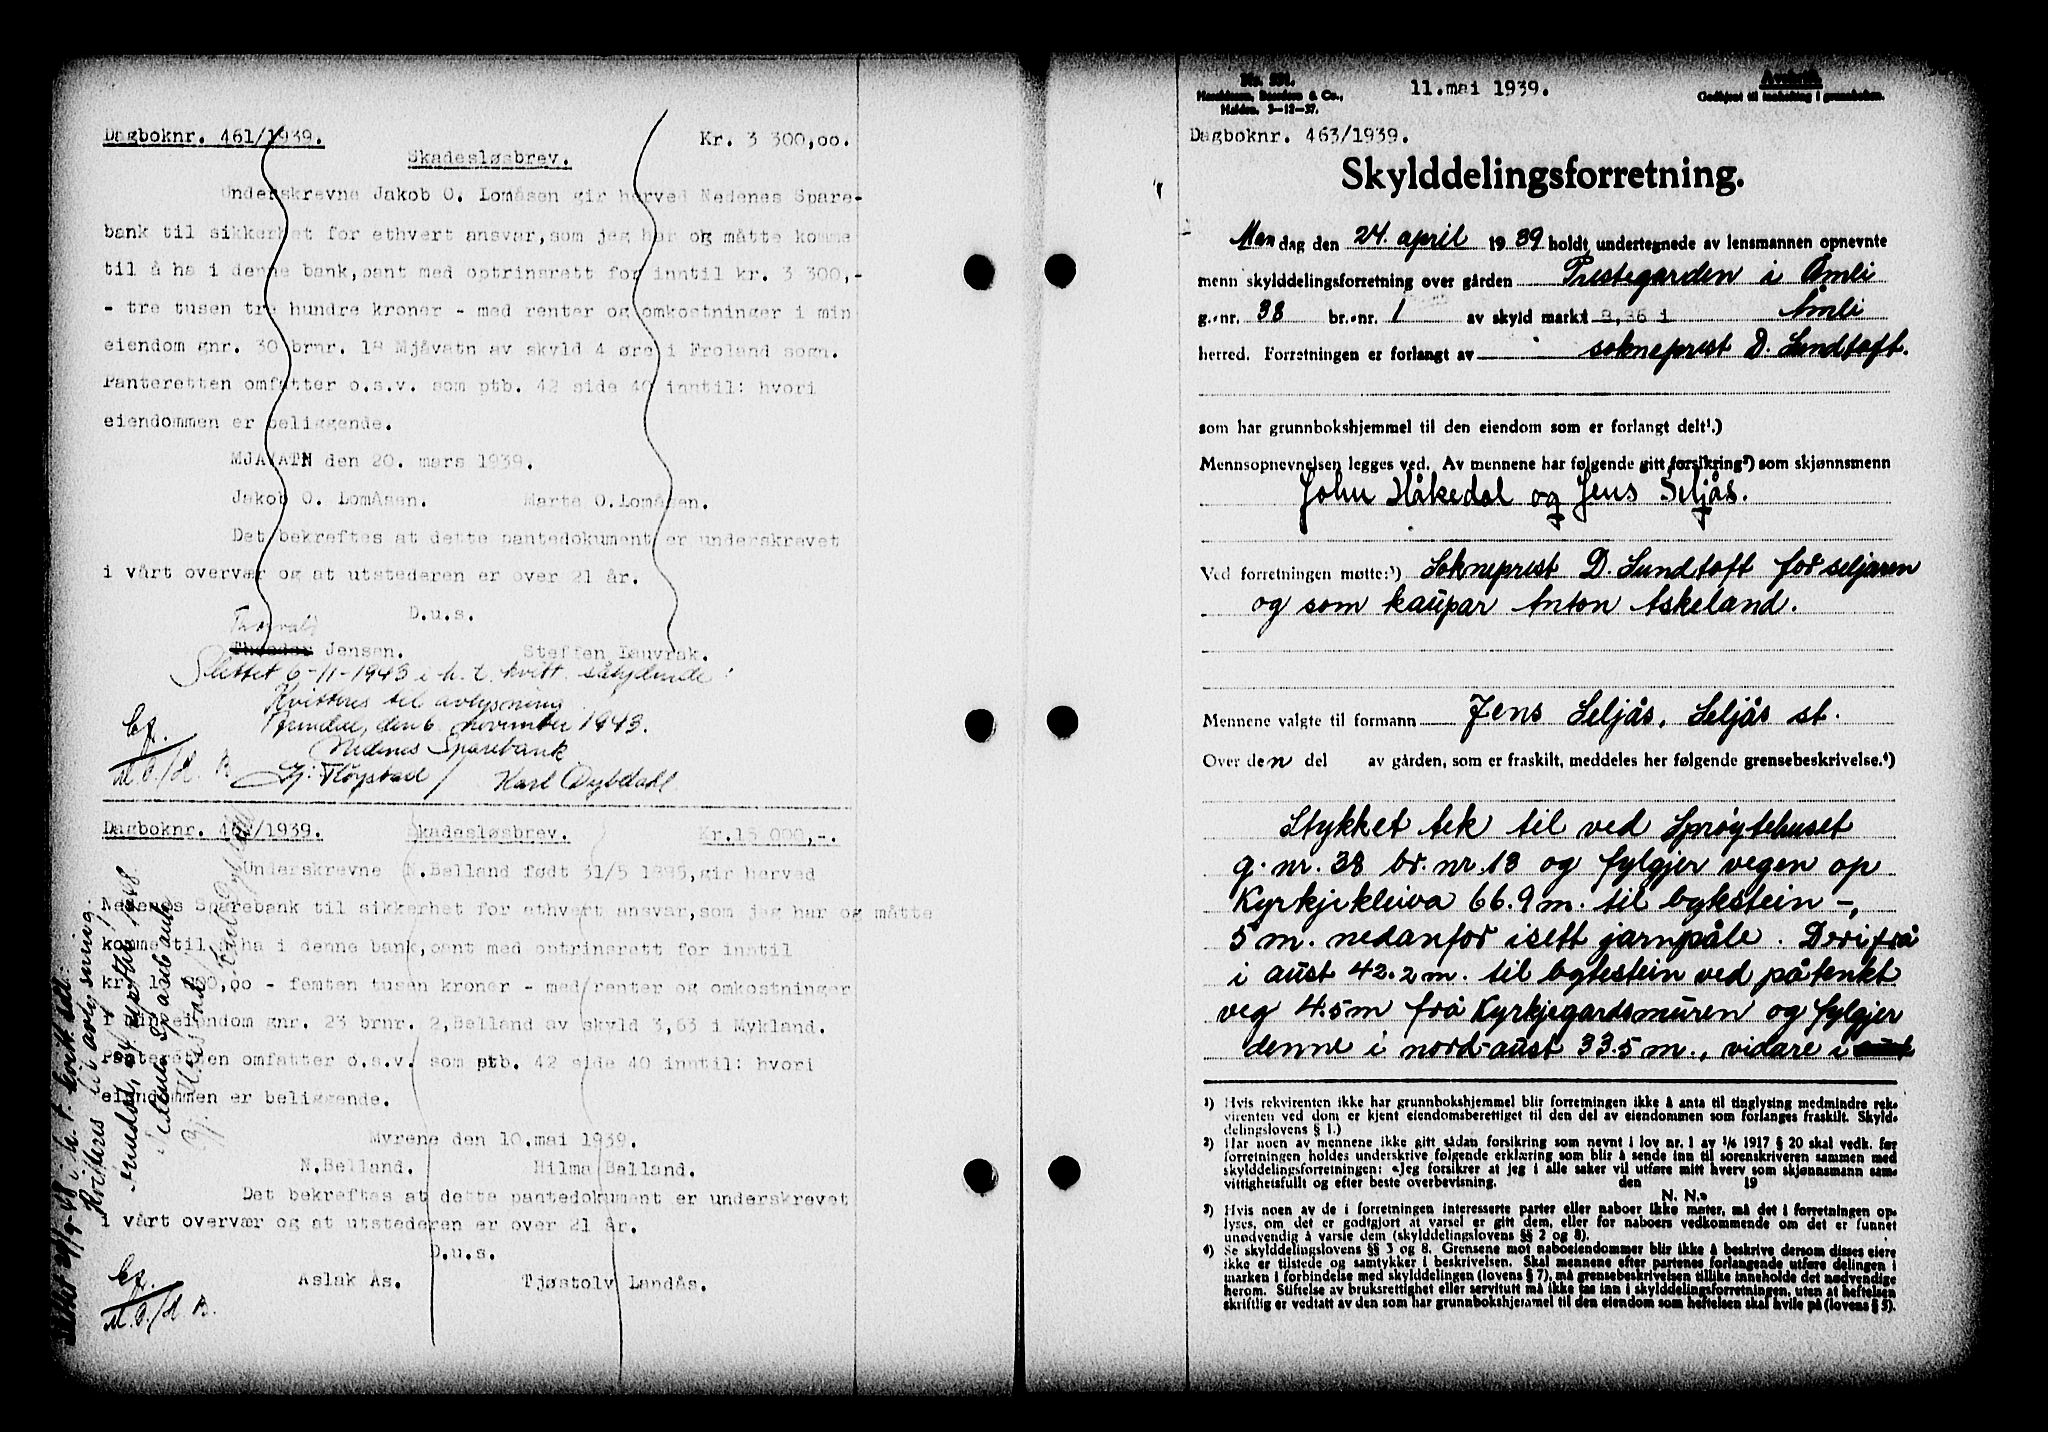 Dagboknr. 461/1939. Kr. 3 300,oo.
Skadesløsbrev.
Underskrevne Jakob O. Lomåsen gir herved Nedenes Spare-
bank til sikkerhet for ethvert ansvar,som jeg har og måtte komme
til å ha i denne bank,pant med optrinsrett for inntil kr. 3 300,-
- tre tusen tre hundre kroner - med renter og omkostninger i min
eiendom gnr. 30 brnr. 18 Mjåvatn av skyld 4 øre i Froland sogn.
Panteretten omfatter o.s.v. som ptb. 42 side 40 inntil: hvori
eiendommen er beliggende.
MJAVATN den 20. mars 1939.
Jakob O. Lomåsen. Marte O.Lomåsen.
Det bekreftes at dette pantedokument er underskrevet
i vårt overvær og at utstederen er over 21 år.
D.u.s.
Torvald
Jensen. Steffen Lauvrak.
Slettet 6-11-1943 i h. t. kvitt. sålydende:
Kvitteres til avlysning
Arendal, den 6. november 1943.
Nedenes Sparebank
Karl Dybdahl
Dagboknr. 462/1939. Skadesløsbrev. Kr.15 000,-.
Underskrevne N.Belland født 31/5 1895,gir herved
Nedenes Sparebank til sikkerhet for ethvert ansvar,som jeg har og måtte
komme til å ha i denne bank,pant med optrinsrett for inntil
kr. 15 000,oo - femten tusen kroner - med renter og omkostninger
i min eiendom gnr. 23 brnr. 2,Belland av skyld 3,63 i Mykland.
Panteretten omfatter o.s.v. som ptb. 42 side 40 inntil: hvori
eiendommen er beliggende.
Myrene den 10.mai 1939.
N.Belland. Hilma Belland.
Det bekreftes at dette pantedokument er underskrevet
i vårt overvær og at utstederen er over 21 år.
D.u.s.
Aslak Ås. Tjøstolv Landås.
Kvitteres til avlysning.
Nedenes Sparebank
11.mai 1939.
Avskrift.
Godkjent til innhefting i grunnboken.
Halden. 3-12-37.
Dagboknr. 463/1939.
Skylddelingsforretning.
Mandag den 24. april 1939 holdt undertegnede av lensmannen opnevnte
menn skylddelingsforretning over gården Prestegarden i Åmli
g.-nr. 38 br.-nr. 1 av skyld mark 8,86 i Åmli
herred. Forretningen er forlangt av sokneprest D. Sundtoft.
som har grunnbokshjemmel til den eiendom som er forlangt delt¹.)
Mennsopnevnelsen legges ved. Av mennene har følgende gitt forsikring²) som skjønnsmenn
John Håkedal og Jens Seljås.
Ved forretningen møtte:³) Sokneprest D. Sundtoft for seljaren
og som kaupar Anton Askeland.
Mennene valgte til formann Jens Seljås, Seljås st.
Over den del av gården, som er fraskilt, meddeles her følgende grensebeskrivelse.⁴)
Stykket tek til ved Sprøytehuset
g. nr. 38 br. nr. 13 og fylgjer vegen op
Kyrkjekleiva 66.9 m. til bytestein -,
5 m. nedanfor isett jarnpåle. Derifrå
i aust 42.2 m. til bytestein ved påtenkt
veg 4.5 m frå Kyrkjegardsmuren og fylgjer
denne i nord-aust 33.5 m., vidare i
¹) Hvis rekvirenten ikke har grunnbokshjemmel blir forretningen ikke å anta til tinglysing medmindre rek-
virenten ved dom er kjent eiendomsberettiget til den del av eiendommen som forlanges fraskilt. Skyld-
delingslovens § 1.)
²) Har noen av mennene ikke gitt sådan forsikring som nevnt i lov nr. 1 av 1/6 1917 § 20 skal vedk. før
forretningen holdes underskrive følgende erklæring som blir å sende inn til sorenskriveren sammen med
skylddelingsforretningen: «Jeg forsikrer at jeg i alle saker vil utføre mitt hverv som skjønnsmann sam-
vittighetsfullt og efter beste overbevisning. den 19
N. N.»
³) Hvis noen av de i forretningen interesserte parter eller naboer ikke møter, må det i forretningen op-
lyses, om det er godtgjort at varsel er gitt dem, eller for naboers vedkommende om det er funnet
unødvendig å varsle dem (skylddelingslovens §§ 2 og 8).
⁴) Se skylddelingslovens §§ 3 og 8. Grensene mot naboeiendommer blir ikke å beskrive dersom disses eiere
ikke er tilstede og samtykker i beskrivelsen. Skal mennene efter partenes forlangende utføre delingen i
marken i forbindelse med skylddelingen (lovens § 7), må grensebeskrivelsen tillike inneholde det nødvendige
herom. Stiftelse av bruksrettighet eller servitutt må ikke tas inn i skylddelingsforretningen, uten at heftelsen
skriftlig er vedtatt av den som har grunnbokshjemmel til den eiendom som heftelsen skal hvile på (lovens § 5).